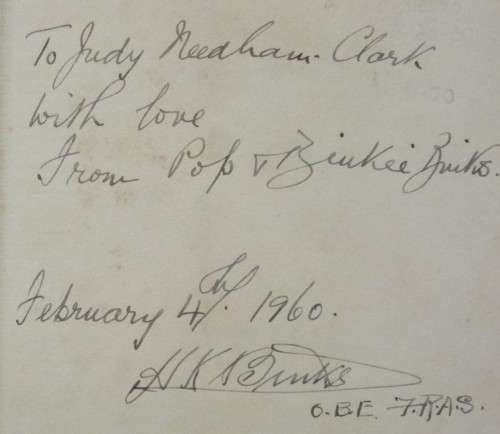 To Judy Needham-Clark
with love
From Pop & Binkie Binks.
February 4th. 1960.
H K Binks
O.B.E. F.R.A.S.